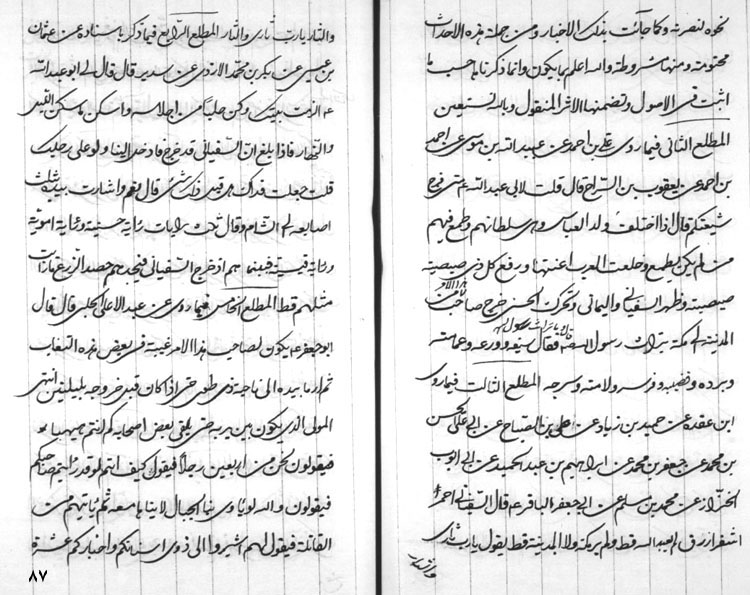 نحوه لنصرته وكما جاءت بذلك الاخبار ومن جملة هذه الاحداث
محتومة ومنها مشروطة والله اعلم بما يكون وانما ذكرناها حسب ما
اثبت في الاصول وتضمنها الاثر المنقول وبالله نستعين
المطلع الثاني فيما روى علي بن احمد عن عبيدالله بن موسى عن احمد
بن احمد عن يعقوب بن السراج قال قلت لابي عبدالله ع متى فرج
شيعتكم قال اذا اختلف ولد العباس ووهى سلطانهم وطمع فيهم
من لم يكن يطمع وخلعت العرب اعنتها ورفع كل ذي صيصية
صيصيته وظهر السفياني واليماني وتحرك الحسني خرج صاحب هذا الامر من
المدينة الى مكة بتراث رسول الله قلت وما تراث رسول الله فقال سيفه ودرعه وعمامته
وبرده وقضيبه وفرسه ولامته وسرجه المطلع الثالث فيما روى
ابن عقدة عن حميد بن زياد عن علي بن الصباح عن ابي علي الحسن
بن محمد عن جعفر بن محمد عن ابراهيم بن عبد الحميد عن ابي ايوب
الخزاز عن محمد بن مسلم عن ابي جعفر الباقر ع قال السفياني احمر
اشقر ازرق لم يعبد الله قط ولم ير مكة ولا المدينة قط يقول يا رب ثاري
والنار يا رب ثاري والنار المطلع الرابع فيما ذكر باسناده عن عثمان
بن عيسى عن بكر بن محمد الازدي عن سدير قال قال لي ابو عبدالله
ع الزم بيتك وكن حلسا من احلاسه واسكن ما سكن الليل
والنهار فاذا بلغ ان السفياني قد خرج فارحل الينا ولو على رجلك
قلت جعلت فداك هل قبل ذلك شيء قال نعم واشار بيده بثلث
اصابعه الى الشام وقال ثلث رايات راية حسنية وراية اموية
وراية قيسية فبينما هم اذ خرج السفياني فيحصدهم حصد الزرع ما رايت
مثلهم قط المطلع الخامس فيما روى عن عبد الاعلى الحلبي قال قال
ابو جعفر ع يكون لصاحب هذا الامر غيبة في بعض هذه الشعاب
ثم اومأ بيده الى ناحية ذي طوى حتى اذا كان قبل خروجه بليلتين انتهى
المولى الذي يكون بين يديه حتى يلقى بعض اصحابه كم انتم هيهنا
فيقولون نحن من اربعين رجلا فيقول كيف انتم لو قد رايتم صاحبكم
فيقولون والله لو ياوى بنا الجبال لاويناها معه ثم ياتيهم من
القابلة فيقول لهم اشيروا الى ذوي اسنانكم واخياركم عشرة
٨٧